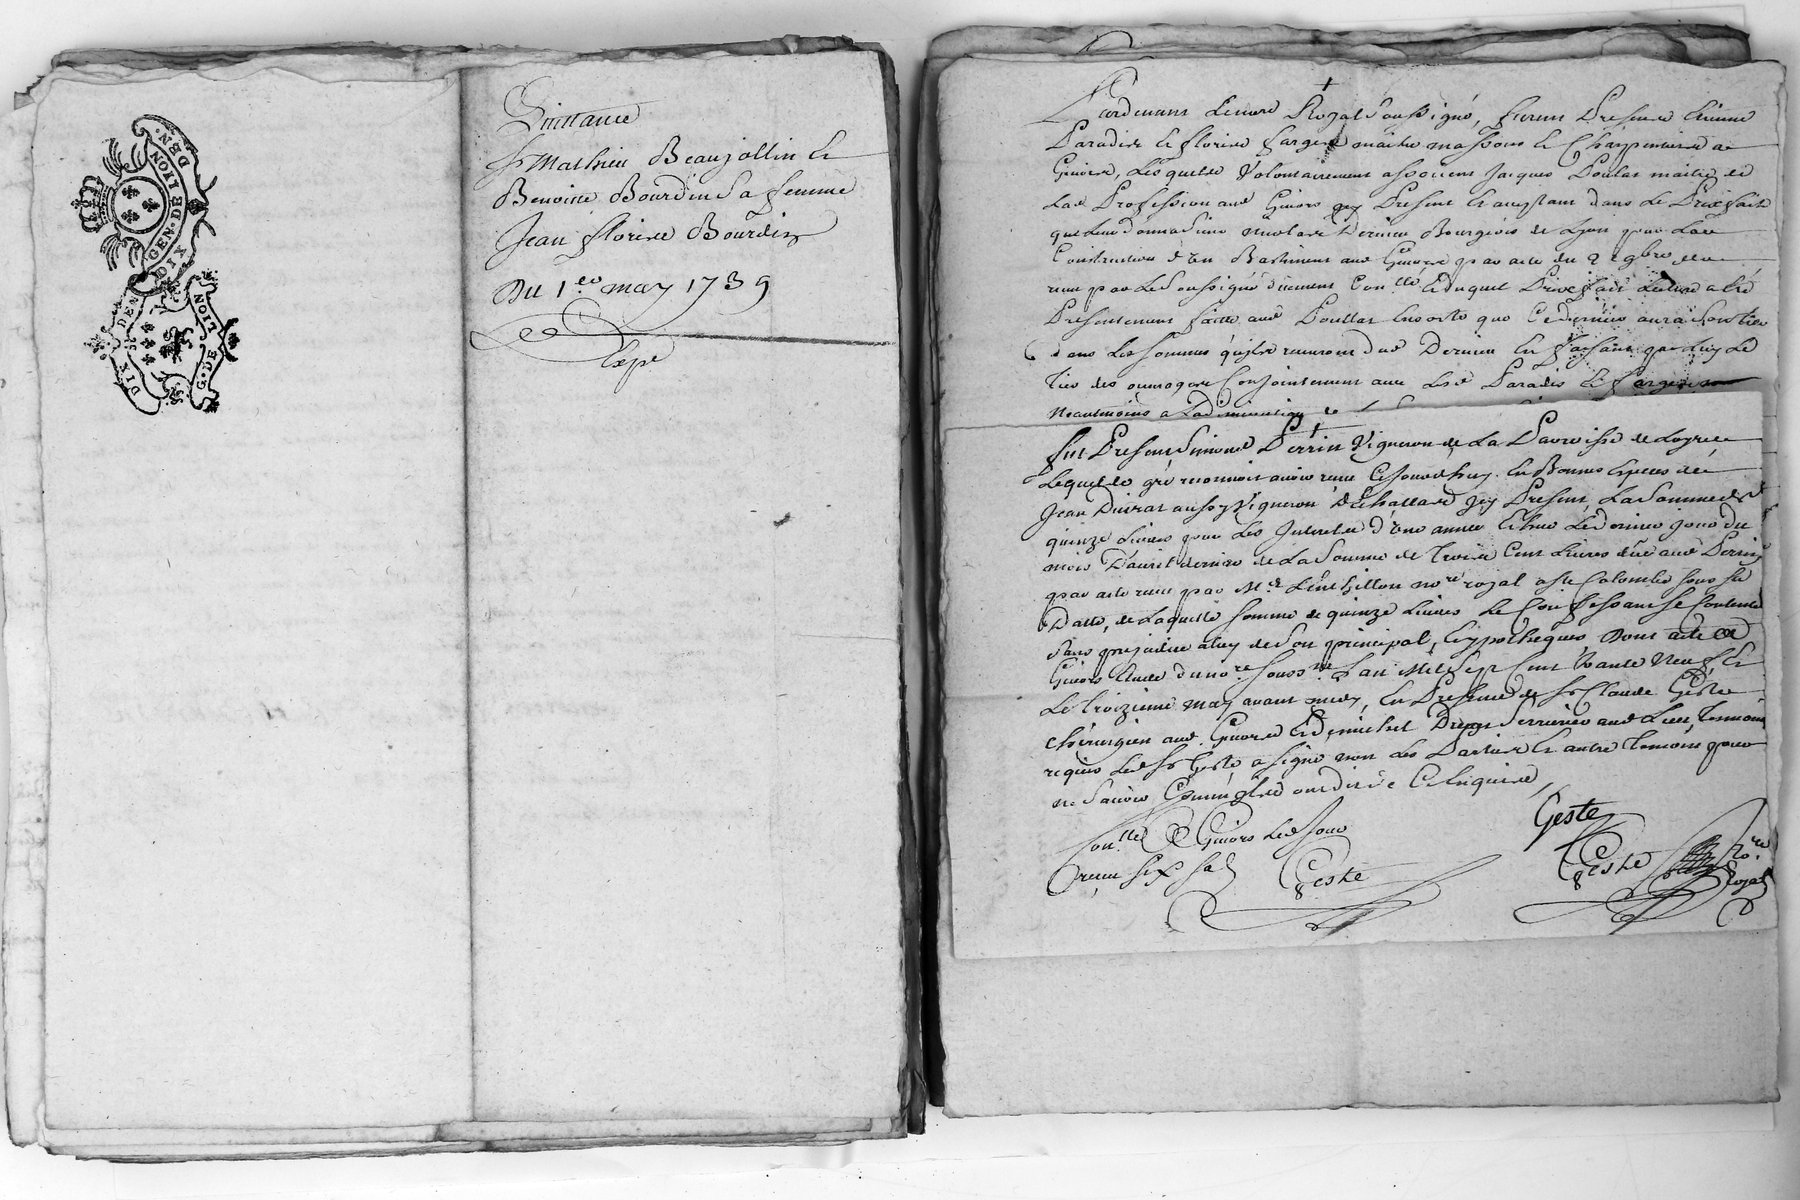 GEN. DE LION
DIX DEN.
DIX DEN.
G. DE LION
Quittance
Sr Mathieu Beaujollin et
Benoitte Bourdin sa femme
Jean florive Bourdin
Du 1er may 1739
Expe
Pardevant Lenore Royal soussigné, furent Presents
Paradis et florive farge maitre massons et Charpentiers de
Givors, Lesquels volontairement associent Jacques Poulat maitre de
lad Profession aud Givors icy Present et acceptant dans le Prixfait
que leur donna sieur Dervieu Bourgeois de Lyon pour la
Construction d'un Bastiment aud Givors par acte du 22 9bre
receu par le soussigné duement Conllé duquel Prixfait lecture a été
Presentement faitte aud Poullat ensorte que ce dernier aura son tier
dans les sommes qu'ils recevront dud Dervieu en faisant par luy le
tier des ouvrages Conjointement avec lesd Paradis et farge
Neautmoins a la diminution
fut Present simond Perrin Vigneron de La Parroisse de Loyre
Lequel de gré reconnoit avoir receu Cejourdhuy en Bonnes especes de
Jean Duirat aussy Vigneron d'Echallas icy Present, La somme de
quinze Livres pour Les Interets d'une année Echue le dernier jour du
mois D'avril dernier de La somme de Trois Cent Livres düe aud Perrin
par acte receu par Me nore royal a Ste Colombe sous sa
Datte, de Laquelle somme de quinze Livres le Confessant se Contente
sans prejudice a luy de son principal, et hypotheques, Dont acte
Givors Etude du nore souss.né L'an Mil Sept Cent trante Neuf, Et
Le troizieme may avant midy, En Presence de Sr Claude Geste
Chirurgien aud. Givors Et de michel Serrurier aud Lieu, temoins
requis Led Sr Geste a signé non les Parties et autre temoins pour
ne sçavoir Comm' ils ont dit de Ce Enquis,
Conllé a Givors led Jour
receu six sols
Geste
Geste
Geste
Nore
Royal